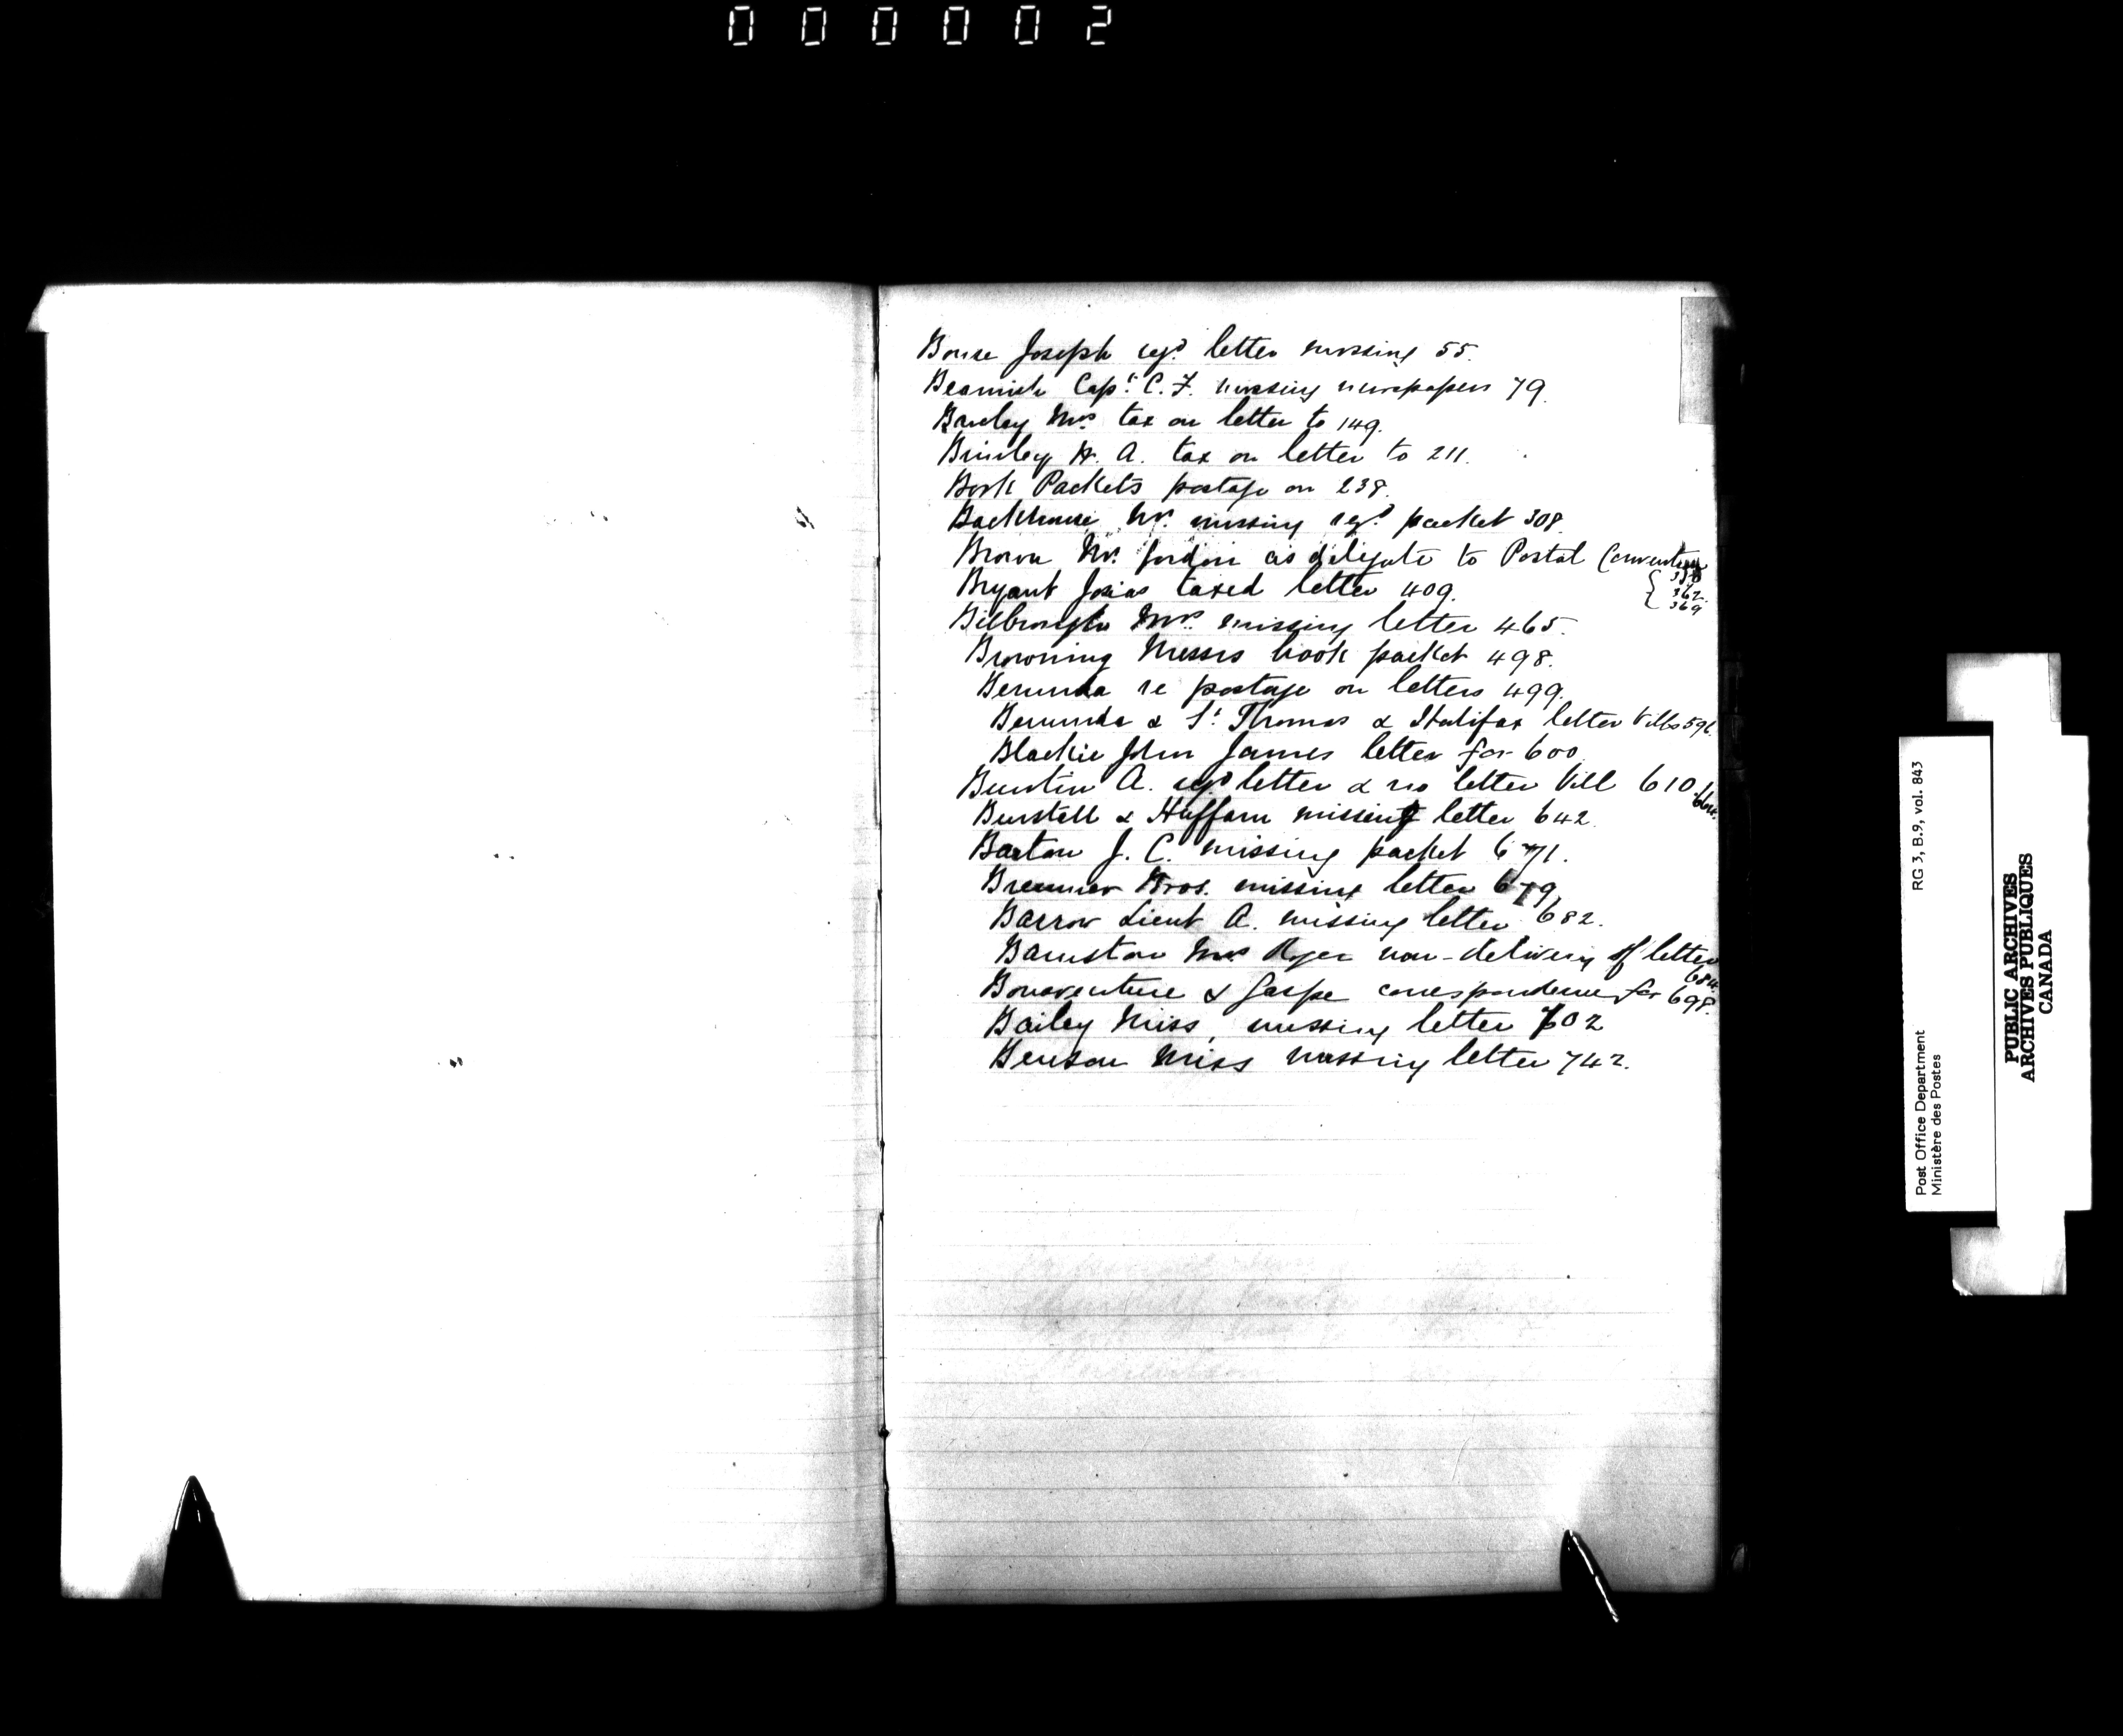 000002
Joseph regd letter missing 55.
Beamish Capt. C. F. missing newspapers 79.
Mrs. tax on letter to 149.
Brinley H. A. tax on letter to 211.
Book Packets postage on 238.
Backhouse Mr. missing regd packet 308.
Brown Mr. Gordon as deligate to Postal Convention
362.
369
Bryant Josias taxed letter 409.
Bilbrough missing letter 465.
Browning Messrs book packet 498.
Bermuda re postage on letters 499.
Bermuda & St. Thomas & Halifax letter bills 596.
Blackie John James letter for 600
A. regd letter & no letter bill 610.
Burstall & Huffam missing letter 642.
Barton J. C. missing packet 671.
Bremner Bros. missing letter 679.
Barrow Lieut A. missing letter 682.
Barnston Mrs Roger non-delivery of letter
684.
Bonaventure & Gaspe correspondence for 698.
Bailey Miss, missing letter 702
Benson Miss missing letter 742.
Post Office Department
Ministère des Postes
RG 3, B.9, vol. 843
PUBLIC ARCHIVES
ARCHIVES PUBLIQUES
CANADA